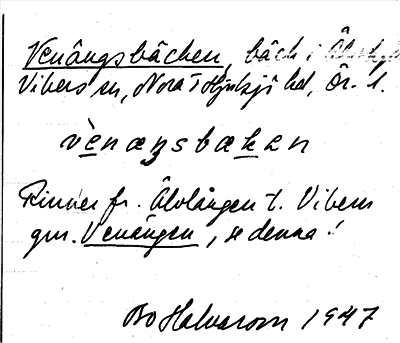 Venängsbäcken, bäck i
Vibers sn, Nora o Hjulsjö hd, Ör. l.
vènæŋsbækεn
Rinner fr. Älvlången t. Vibern
gm. Venängen, se denna!
Bo Halvarson 1947